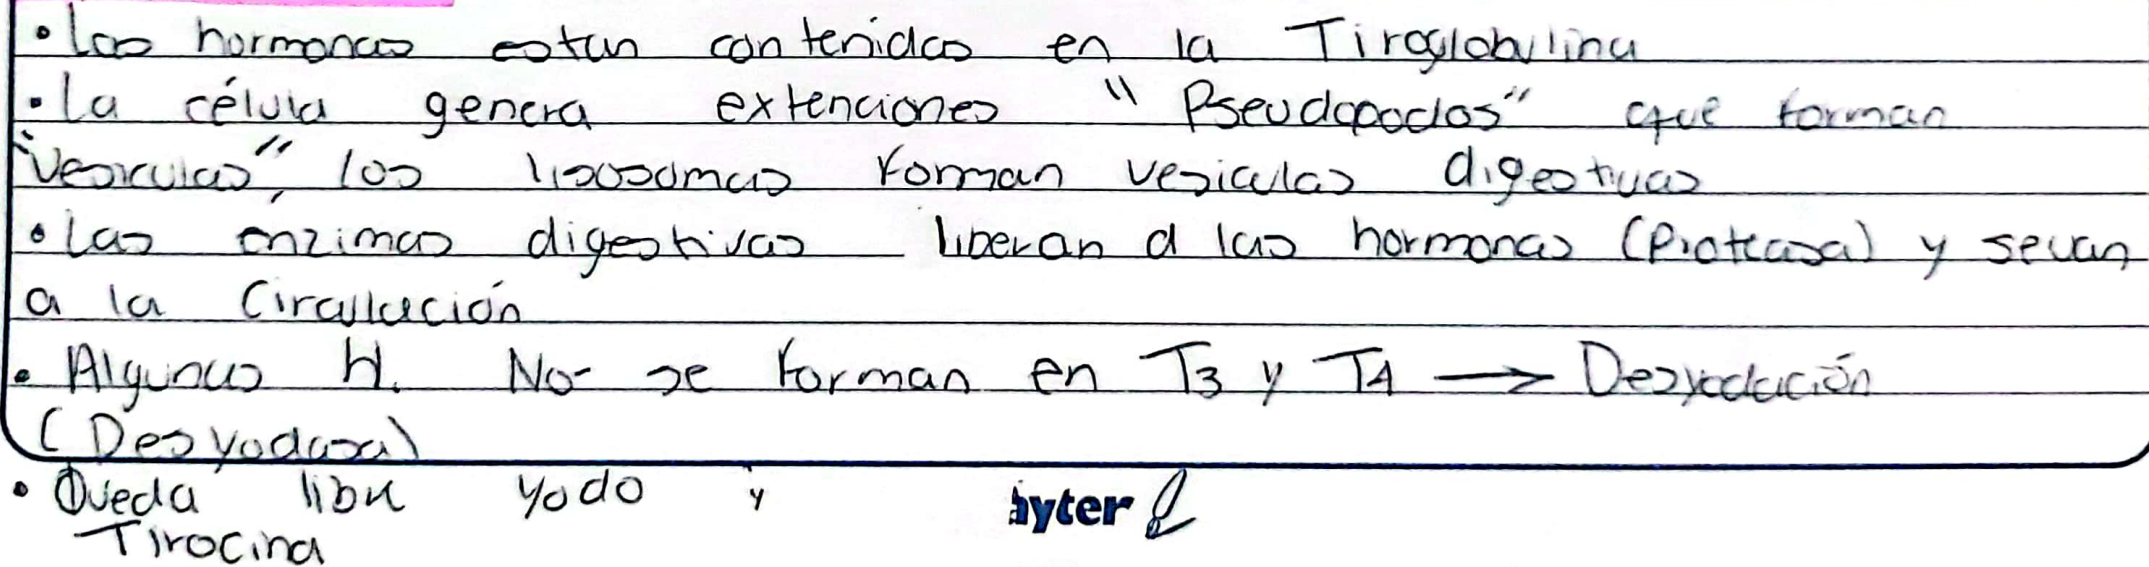 • Las hormonas estan contenidas en la Tiroglobulina
• La célula genera extenciones "Pseudopodos" que forman
"Vesiculas", los lisosomas forman vesiculas digestivas
• Las enzimas digestivas liberan a las hormonas (Proteasa) y sevan
a la Circulación
• Algunas H. No se forman en T3 y T4 → Desyodación
(Desyodasa)
• Queda libre yodo y
Tirocina
ayter